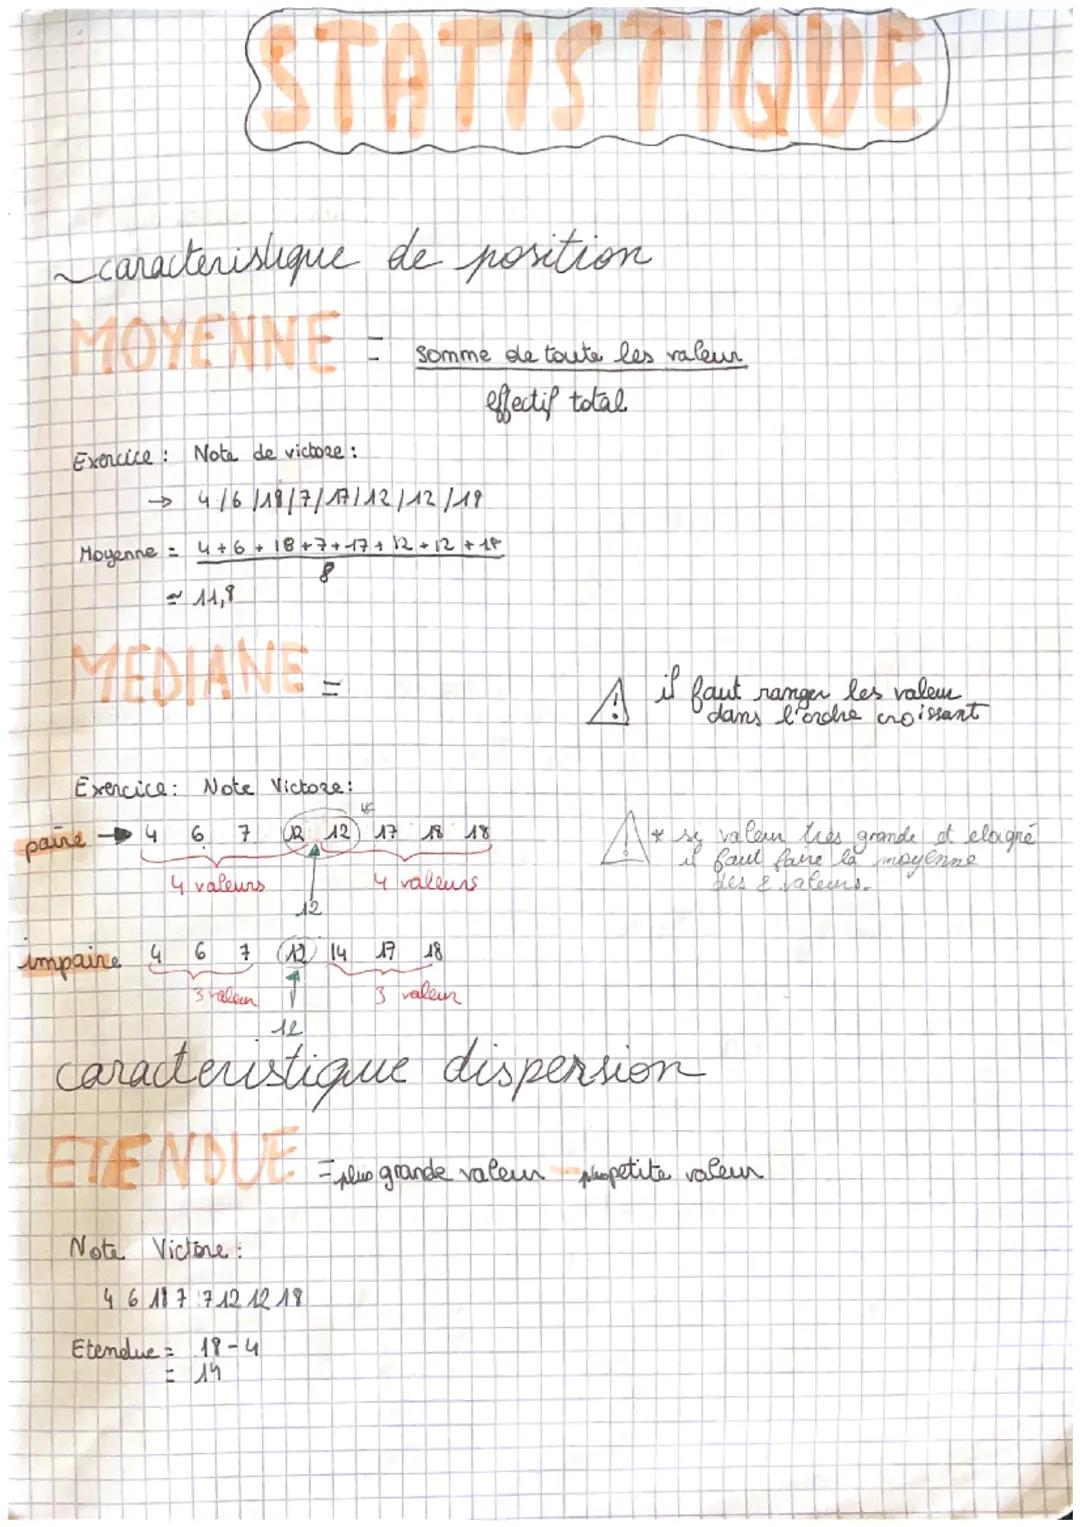 STATISTIQUE
~caracteristique de position
MOYENNE = somme de toute les valeur
effectif total
Exercice : Note de victore :
→ 4/6/18/7/17/12/12/18
Moyenne = 4+6+18+7+17+12+12+18
8
≃ 11,8
MEDIANE =
⚠ il faut ranger les valeur
dans l'ordre croissant
Exercice : Note Victore :
paire → 4 6 7 12 12 * 17 18 18
4 valeurs 4 valeurs
12
⚠ * si valeur très grande et eloigné
il faut faire la moyenne
des 2 valeurs.
impaire 4 6 7 12 14 17 18
3 valeur 3 valeur
12
caracteristique dispersion
ETENDUE = plus grande valeur - plus petite valeur
Note Victore :
4 6 18 7 7 12 12 18
Etendue = 18-4
= 14